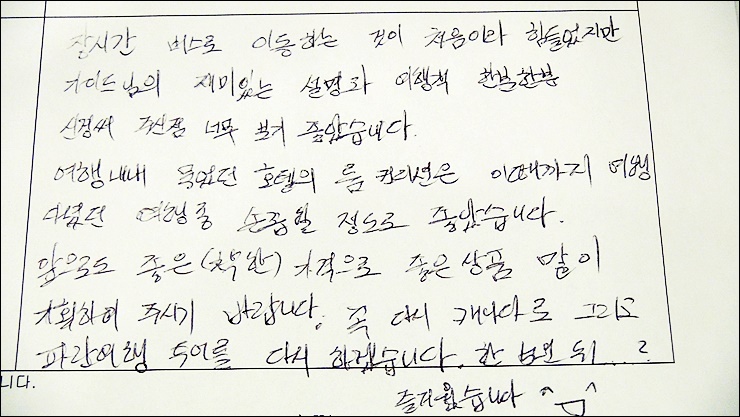 장시간 버스로 이동하는 것이 처음이라 힘들었지만
가이드님의 재미있는 설명과 여행객 한분한분
신경써 주신점 너무 보기 좋았습니다.
여행내내 묵었던 호텔의 룸 컨디션은 이때까지 여행
다녔던 여행중 손꼽힐 정도로 좋았습니다.
앞으로도 좋은(착한) 가격으로 좋은상품 많이
기획하여 주시기 바랍니다. 꼭 다시 캐나다로 그리고
파란여행 투어를 다시 하겠습니다. 한 뒤...?
니다.
즐거웠습니다